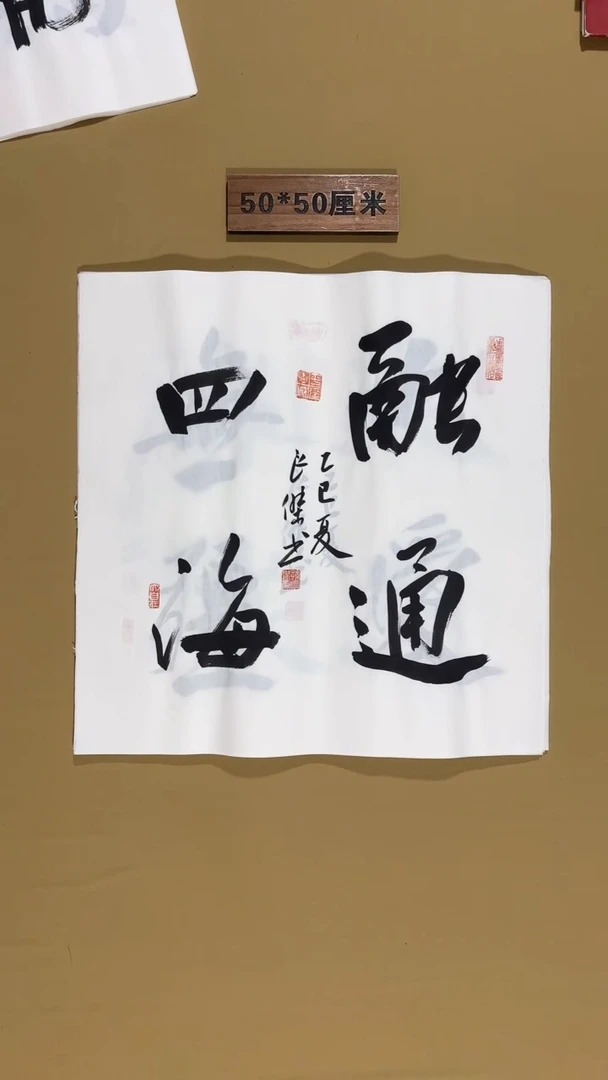 50*50厘米
融通
四海
乙巳夏
长傑书